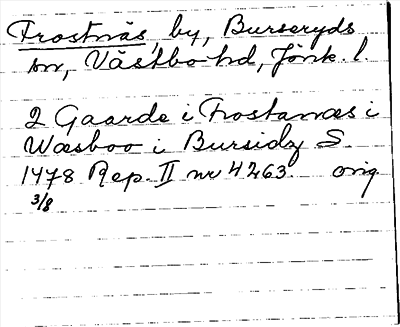 Frostnäs, by, Burseryds
sn, Västbo hd, Jönk. l.
2 Gaarde i Frostanæs i
Wæsboo i Bursidz S.
1478 Rep. II nr 4263. orig
3/8